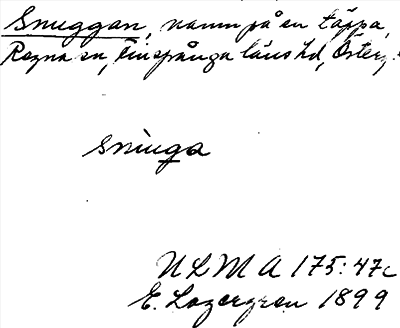 Snuggan, namn på en täppa,
Regna sn, Finspånga läns hd, Österg.
snúga
ULMA 175:47c
E. Lagergren 1899